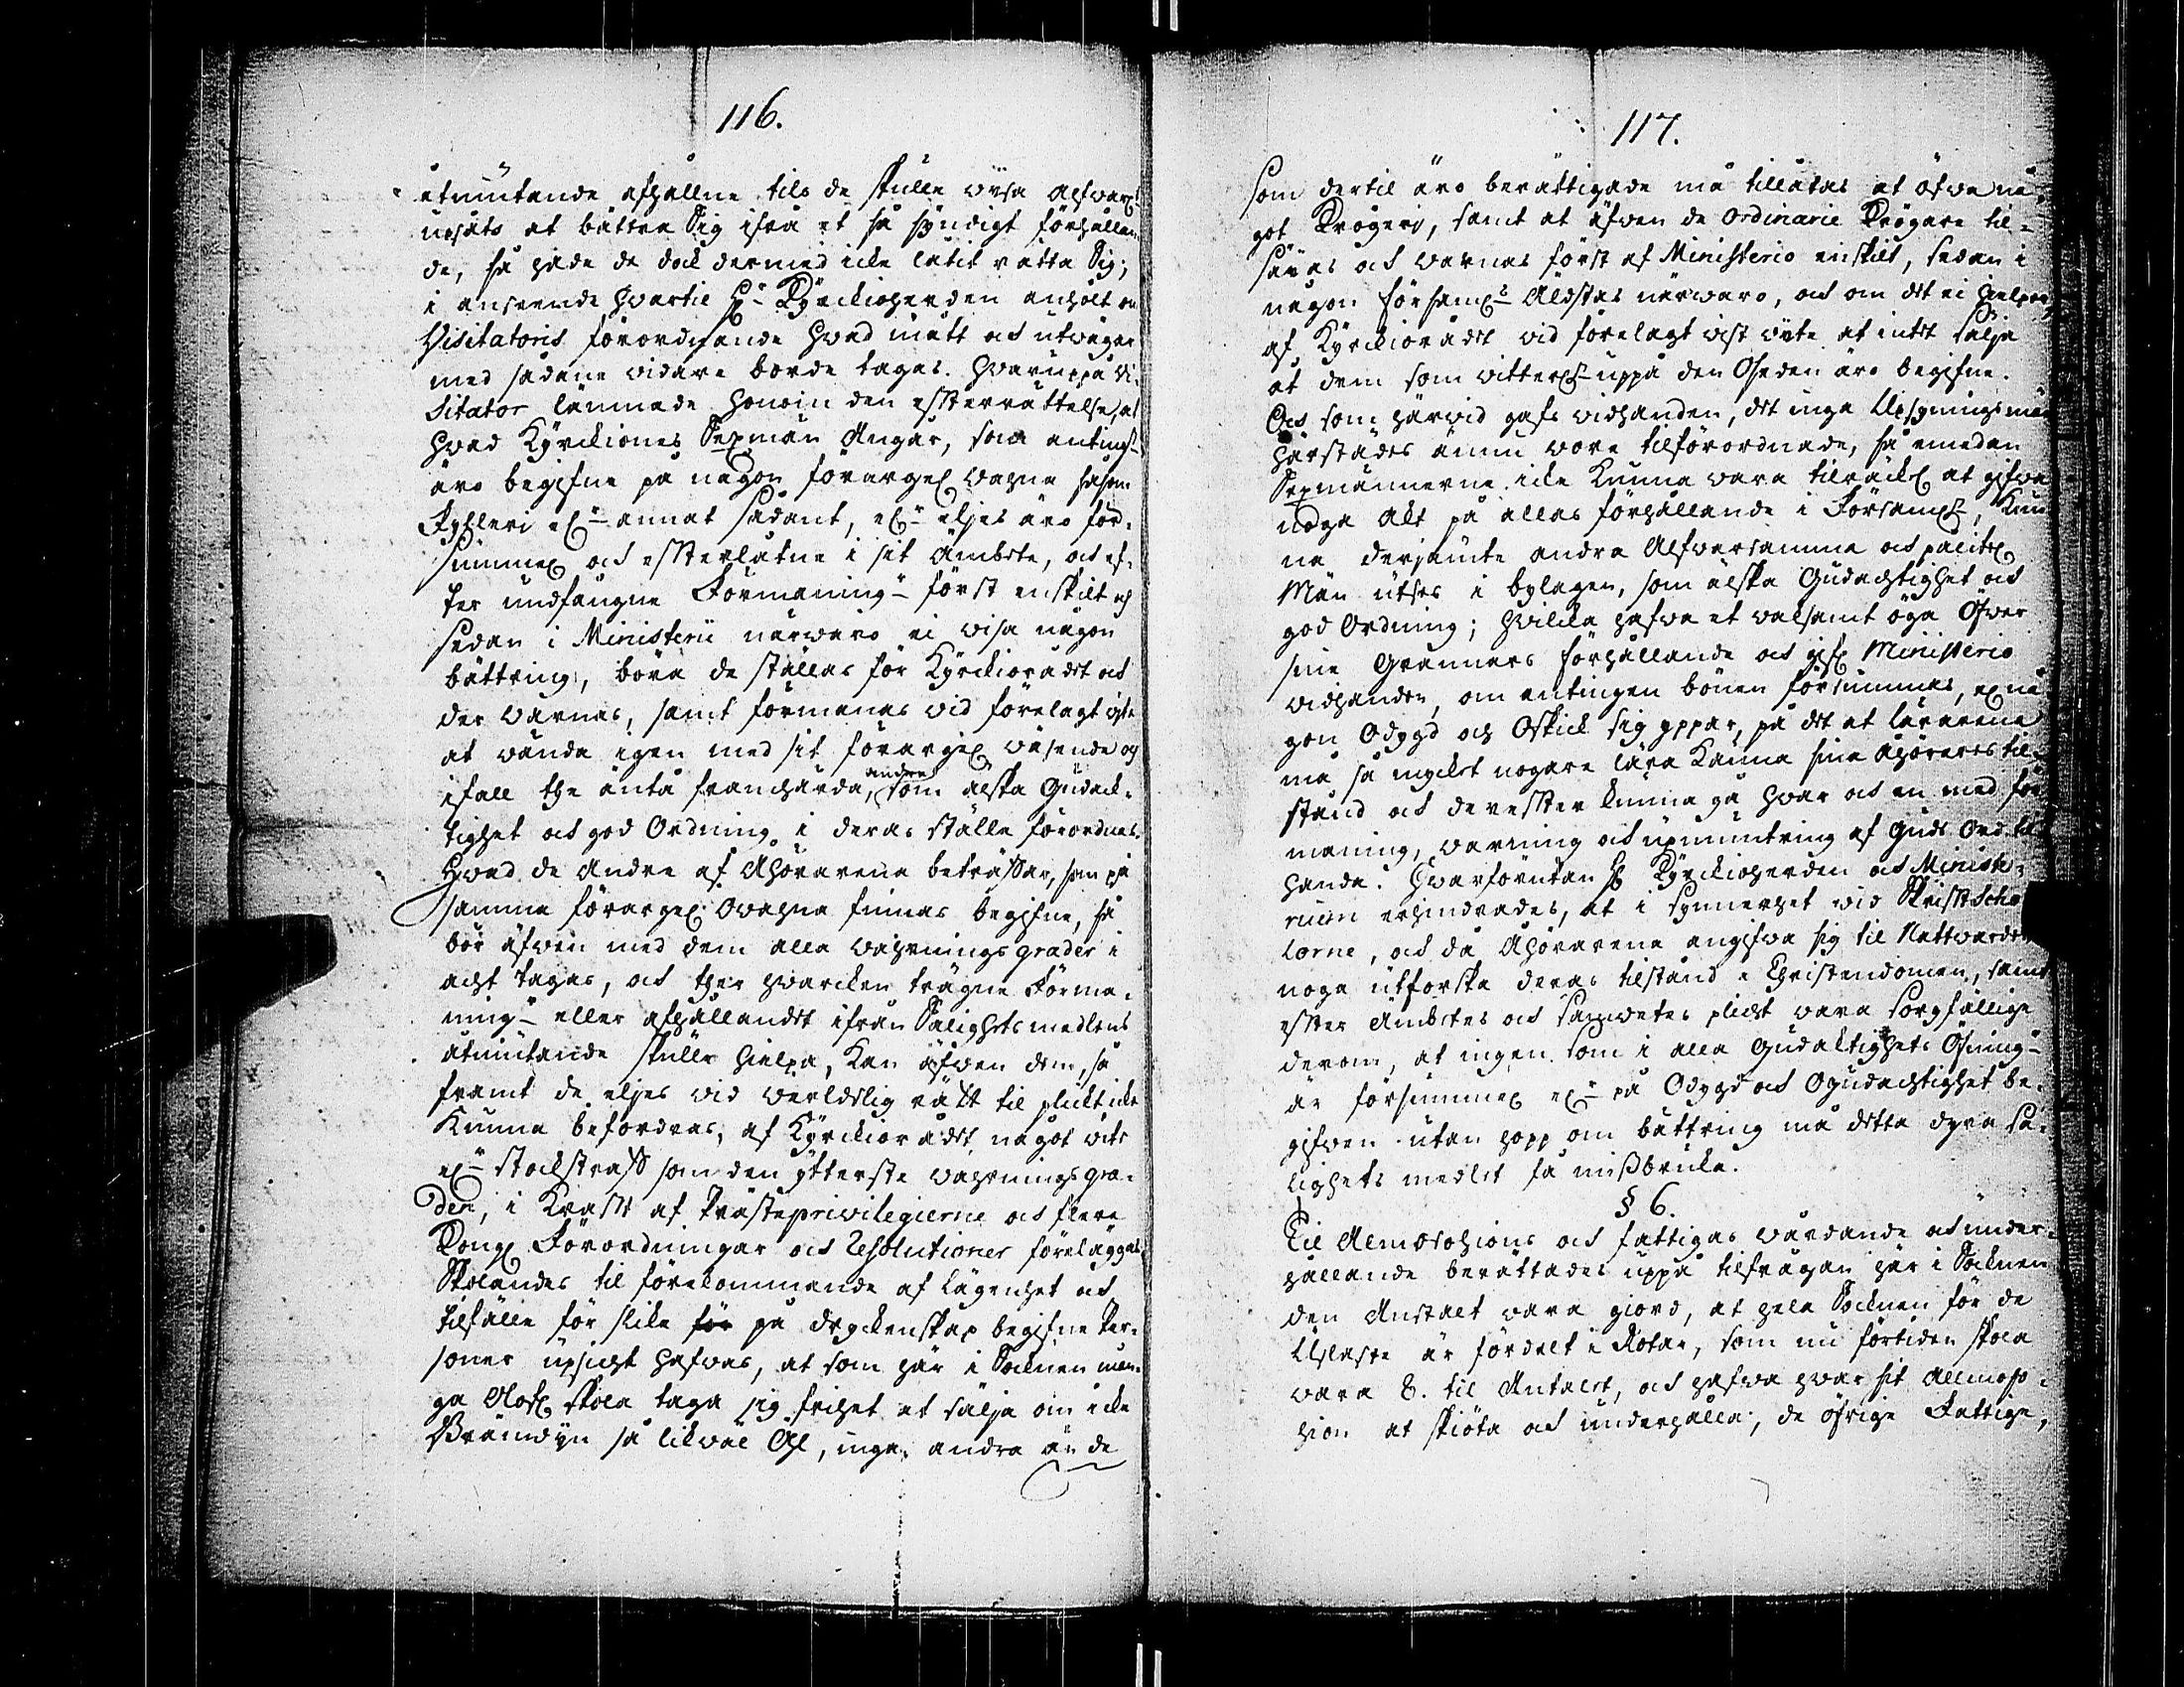 116.
åtniutande afhållne tils de skulle wisa alfvarl.
upsåt at bättra Sig ifrå et så syndigt förhållan-
de, så hade de dock dermed icke låtit rätta Sig;
i anseende hvartil Hr Kyrckioherden anhölt om
Visitatoris förordnande hvad mått och utvägar
med sådane vidare borde tagas. Hvaruppå Vi-
sitator lämnade honom den efterrättelse, at
hvad Kyrckiones Sexmän Angår, som antingn
äro begifne på någon förargel. vahna såsom
Fylleri elr annat sådant, elr eljes äro för-
summel. och efterlåtne i sit Ämbete, och ef-
ter undfångne Förmaningr först enskilt och
sedan i Ministerii närvaro ei wisa någon
bättring, böra de ställas för Kyrckiorådet och
der varnas, samt förmanas vid förelagt vite
at vända igen med sit förargel. väsende och
ifall the ändå framhärda, andre som älska Gudack-
tighet och god Ordning i deras ställe förordnas.
Hvad de Andre af Åhörarena beträffar, som på
samma förargel. Ovahna finnas begifne, så
bör äfven med dem alla varningsgrader i
acht tagas, och ther hvarcken trägne Förma-
ningr eller afhållandet ifrån Salighetsmedlens
åtniutande skulle hielpa, kan äfven dem, så
framt de eljes vid verldslig rätt til plickt icke
kunna befordras, af Kyrckiorådet något vite
elr stockstraff som den ytterste varningsgra-
den, i Kraft af Prästeprivilegierne och flere
Kongl. Förordningar och Resolutioner föreläggas.
Skolandes til förekommande af lägenhet och
tilfälle för slike för på dryckenskap begifne Per-
soner upsicht hafvas, at som här i Socknen mån-
ga skola taga sig frihet at sälja om icke
Bränwijn så likväl Öl, inga andra än de
117.
som dertil äro berättigade må tillåtas at öfva nå-
got Krögeri, samt at äfven de ordinarie Krögare til-
säjas och varnas först af Ministerio enskilt, sedan i
någon församls Äldstes närvaro, och om det ei hielper
af Kyrckiorådet vid förelagt vist vite at intet sälja
åt dem som vitterln uppå den Oseden äro begifne.
Och som härvid gafs vidhanden, det inga Upsyningsmän
härstädes ännu vore tilförordnade, så emedan
Sexmännerne icke kunna vara tilräckl. at gifva
noga Akt på allas förhållande i Församln, kun-
na derjämte andra Alfvarsamma och pålitel.
Män utses i bylagen, som älska Gudachtighet och
god Ordning; hvilka hafva et vaksamt öga öfver
sine Grannars förhållande och gifv. Ministerio
vidhanden, om antingen bönen försummas, el. nå-
gon Odygd och Oskick sig yppar, på det at Lärarena
må så mycket nogare lära känna sina Åhörares til-
stånd och derefter kunna gå hvar och en med för-
maning, varning och upmuntring af Guds Ord til
handa. Hvarförutan Hr Kyrckioherden och Ministe-
rium erhindrades, at i synnerhet vid Skriftscho-
lorne, och då Åhörarena angifva sig til Nattvarden
noga utforska deras tilstånd i Christendomen, samt
efter Ämbetes och samvetes plicht vara sorgfällige
derom, at ingen som i alla Gudaktighets Öfningr
är försummel. elr på Odygd och Ogudachtighet be-
gifven utan hopp om bättring må detta dyra Sa-
lighets medlet få missbruka.
§ 6.
Til Allmosohions och fattigas vårdande och under-
hållande berättades uppå tilfrågan här i Socknen
den Anstalt vara giord, at hela Socknen för de
Uslaste är fördelt i Rotar, som nu förtiden skola
vara 8. til Antalet, och hafva hvar sit Allmoso-
hion at skiöta och underhålla; de öfrige Fattige,